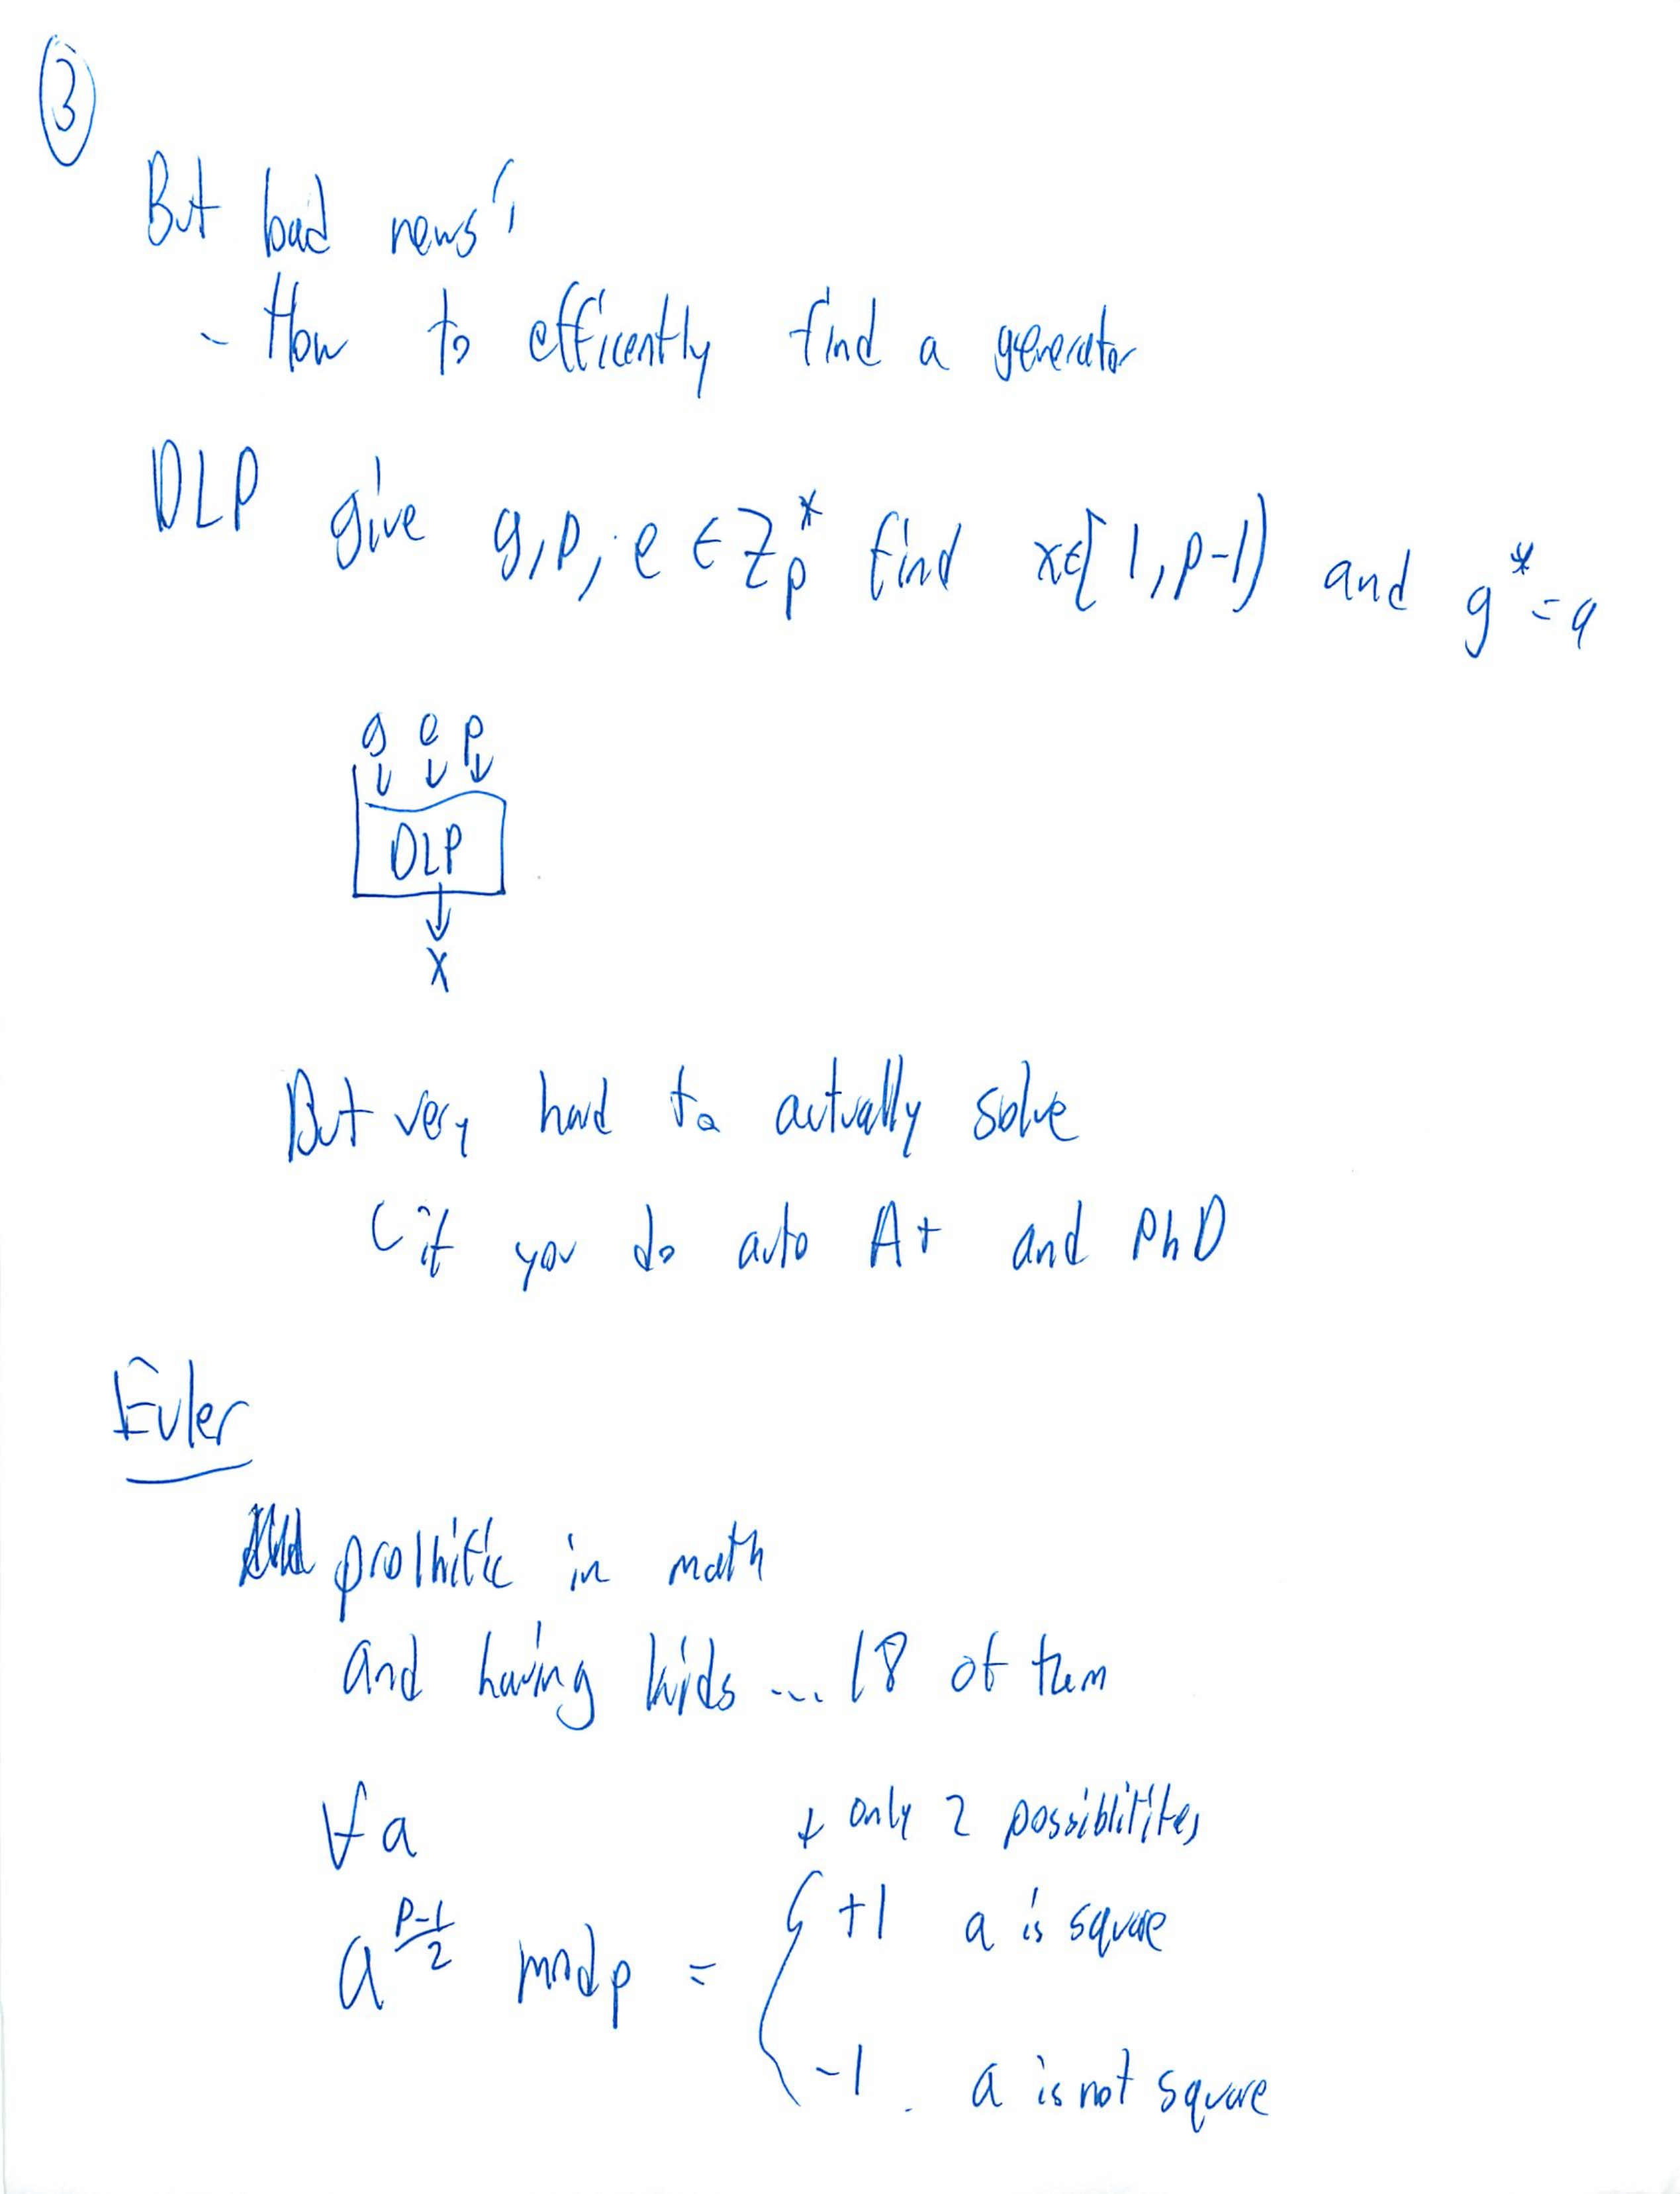 3
But bad news:
- How to efficently find a generator
DLP give g, p, e ∈ Z_p^* find x ∈ [1, p-1] and g^x = a
g e p
DLP
x
But very hard to actually solve
(if you do auto A+ and PhD
Euler
prolhific in math
and having kids ... 18 of them
∀ a
↓ only 2 possiblitites
a^{\frac{p-1}{2}} mod p = { +1 a is square
-1 a is not square